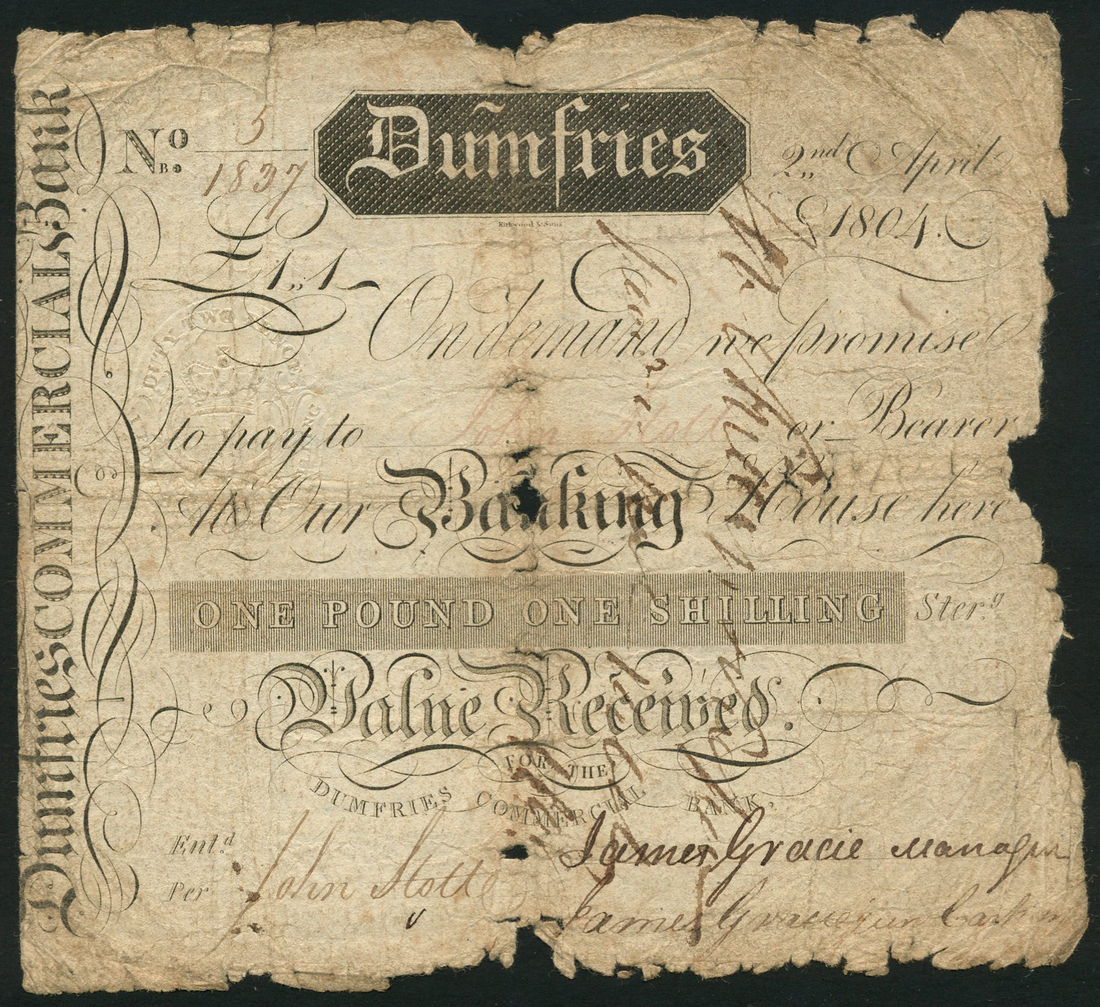 Dumfries COMMERCIAL Bank
No 5
Bo 1837
Dum̃fries
2nd April
1804.
Kirkwood & Sons
£1,,1
On demand we promise
to pay to John Stott or Bearer
At Our Banking House here
ONE POUND ONE SHILLING Ster.g
Value Received.
FOR THE
DUMFRIES COMMERCIAL BANK,
Ent.d
Per John Stott
James Gracie Manager
James Gracie jun